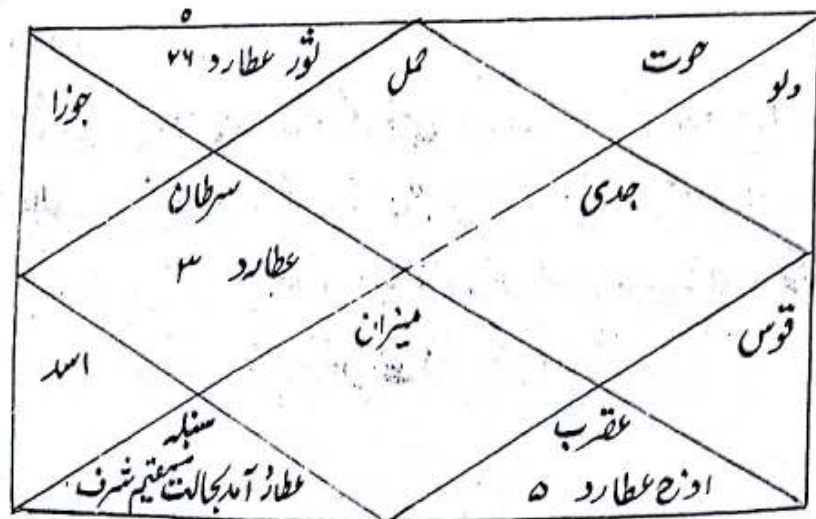 ثور عطارد ۲۶
حمل
حوت
دلو
جوزا
سرطان
عطارد ۳
جدی
میزان
قوس
اسد
سنبلہ
عطارد آمد بحالت مستقیم شرف
عقرب
اوج عطارد ۵